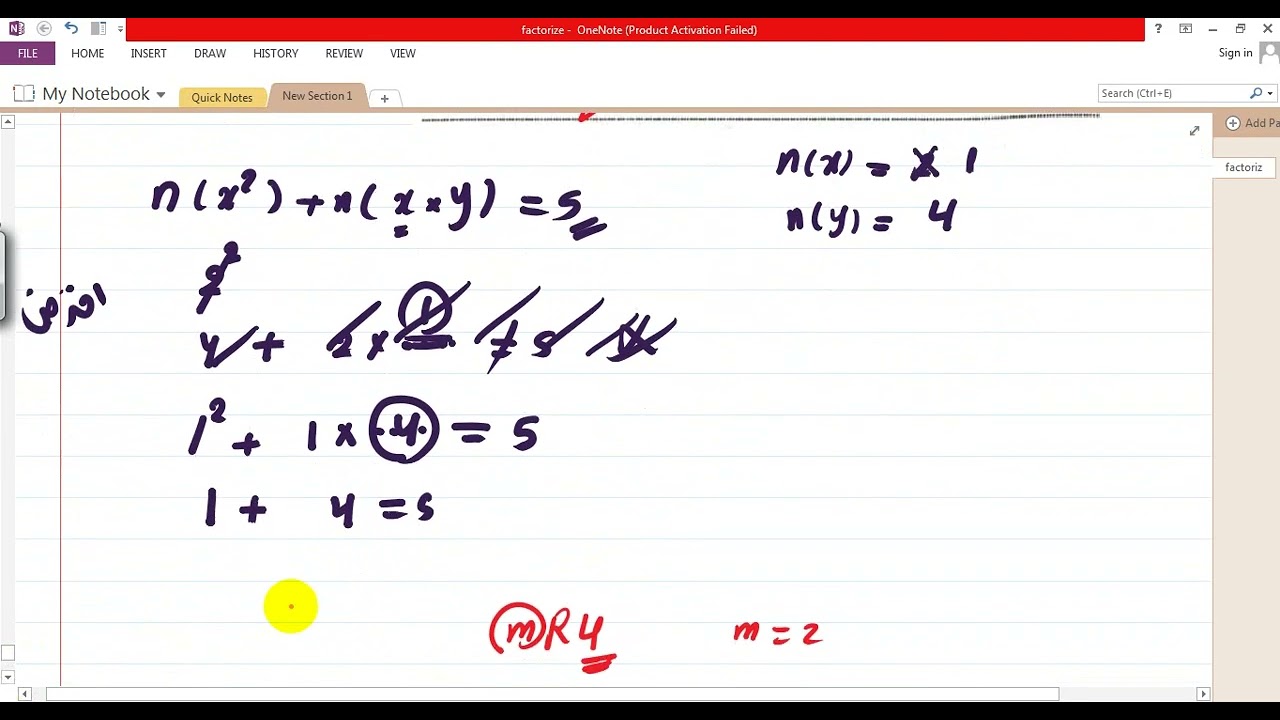 factorize - OneNote (Product Activation Failed)
?
FILE HOME INSERT DRAW HISTORY REVIEW VIEW
Sign in
My Notebook
Quick Notes
New Section 1
Search (Ctrl+E)
Add Pa
factoriz
n(x) = 1
n(y) = 4
n(x²) + n(x × y) = 5
1² + 1 × 4 = 5
1 + 4 = 5
m R 4
m = 2